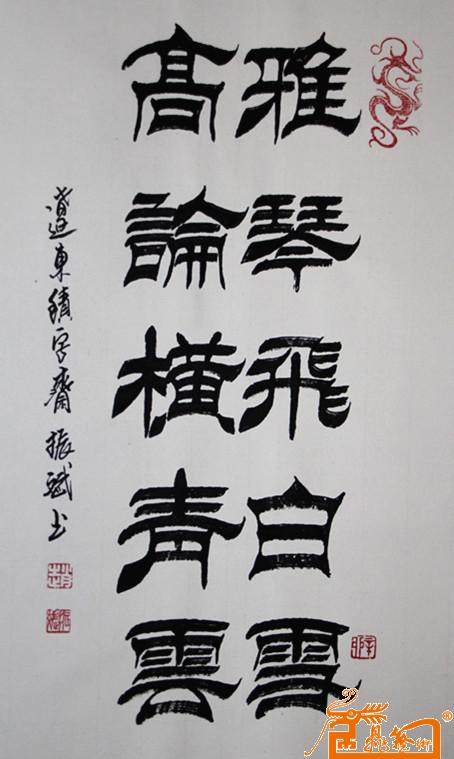 雅琴飛白雪
高論橫青雲
遼東積字齋振斌书